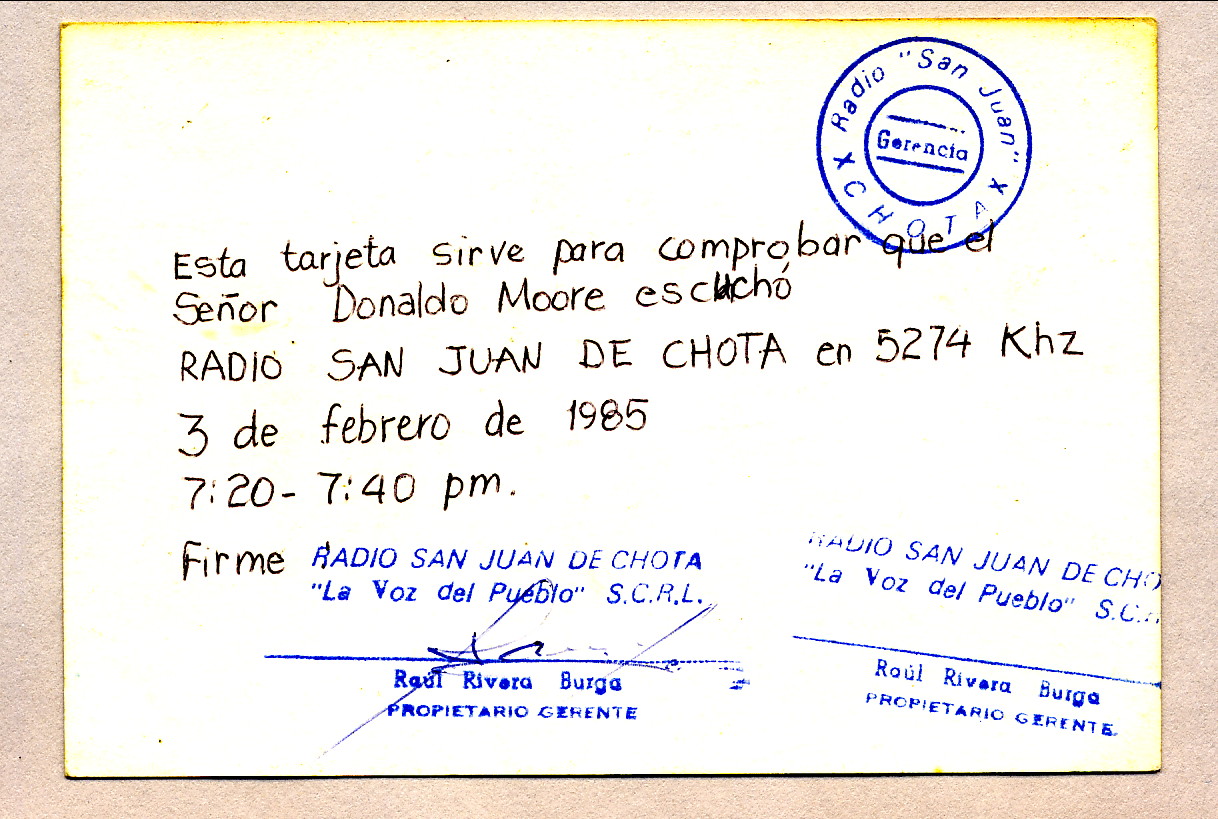 Radio "San Juan"
Gerencia
x CHOTA x
Esta tarjeta sirve para comprobar que el
Señor Donaldo Moore escuchó
RADIO SAN JUAN DE CHOTA en 5274 Khz
3 de febrero de 1985
7:20- 7:40 pm.
Firme RADIO SAN JUAN DE CHOTA
"La Voz del Pueblo" S.C.R.L.
Raúl Rivera Burga
PROPIETARIO GERENTE
RADIO SAN JUAN DE CHO
"La Voz del Pueblo" S.C.
Raúl Rivera Burga
PROPIETARIO GERENTE.